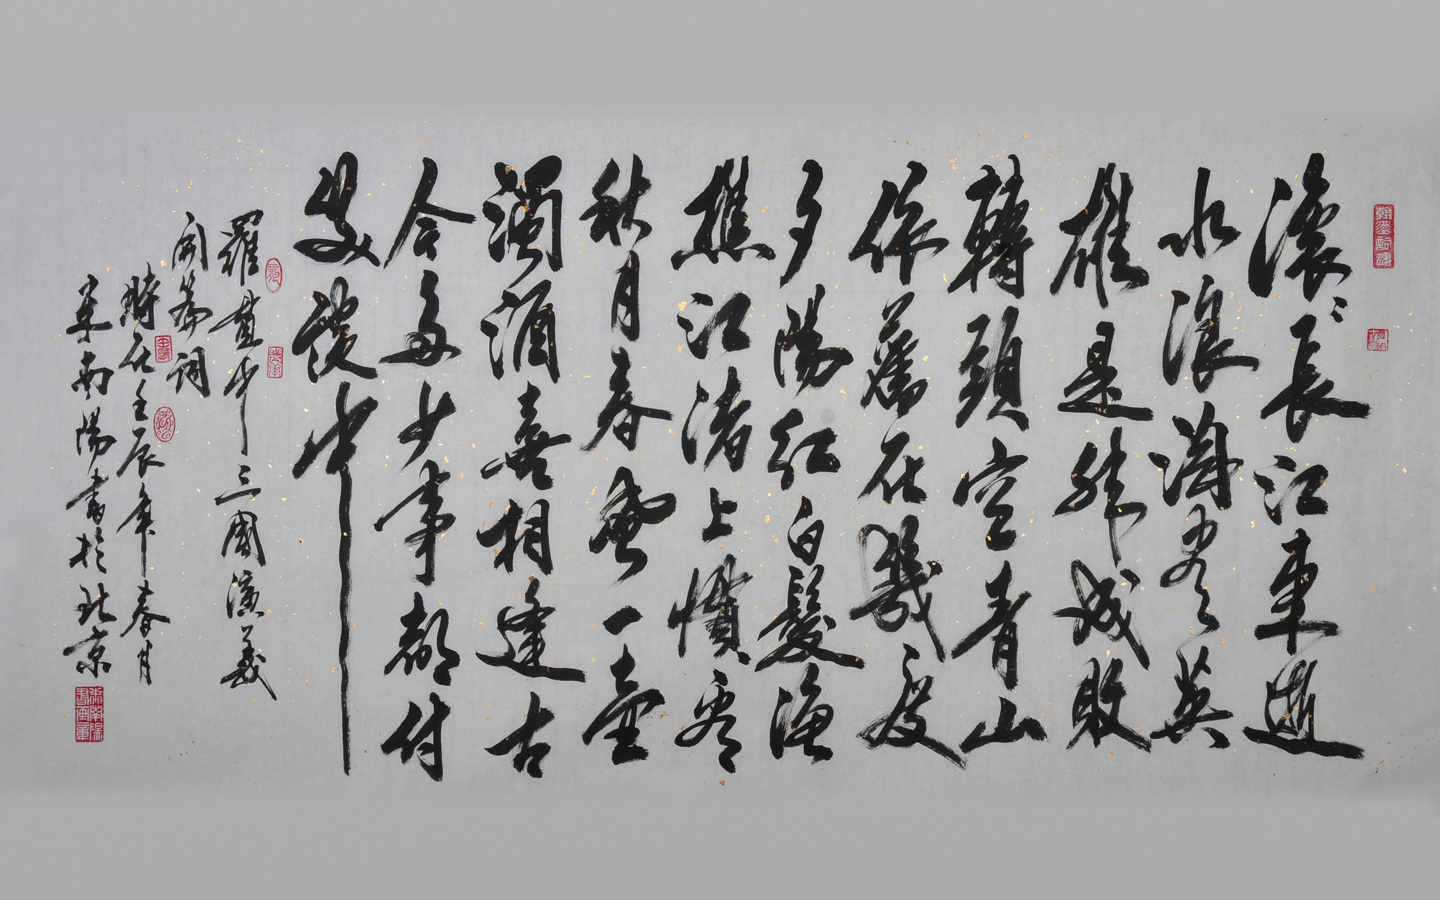 滚〻長江東逝
水浪淘尽英
雄是非成敗
轉頭空青山
依舊在幾度
夕陽紅白髮漁
樵江渚上慣看
秋月春風一壺
濁酒喜相逢古
今多少事都付
笑談中
羅貫中三國演義
開篇詞
時在壬辰年春月
南陽書於北京